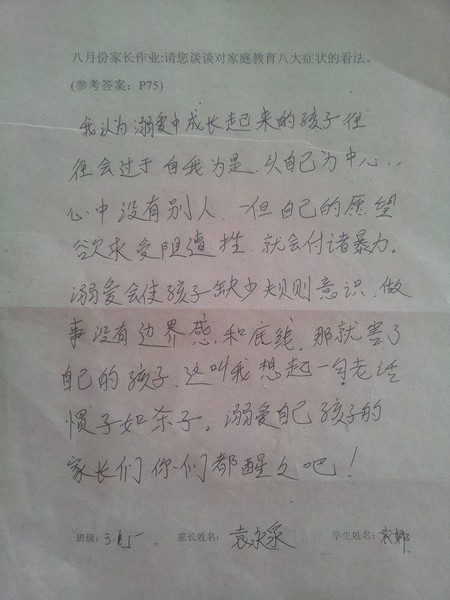 八月份家长作业:请您谈谈对家庭教育八大症状的看法。
(参考答案：P75)
我认为溺爱中成长起来的孩子往
往会过于自我为是.以自己为中心..
心中没有别人.一但自己的愿望
欲求受阻遭挫.就会付诸暴力.
溺爱会使孩子缺少规则意识.做
事没有边界感和底线.那就害了
自己的孩子.这叫我想起一句老话
惯子如杀子。溺爱自己孩子的
家长们你们都醒久吧！
班级：3. 家长姓名：袁永 学生姓名：袁娜